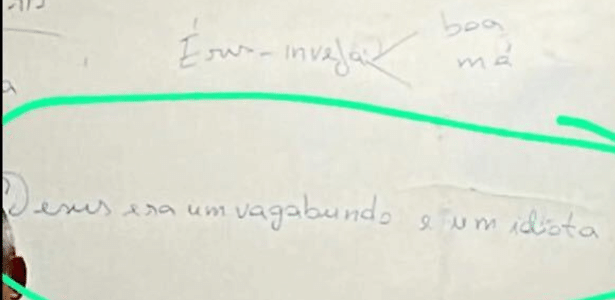 boa
Érus - inveja
má
a
Jesus era um vagabundo e um idiota